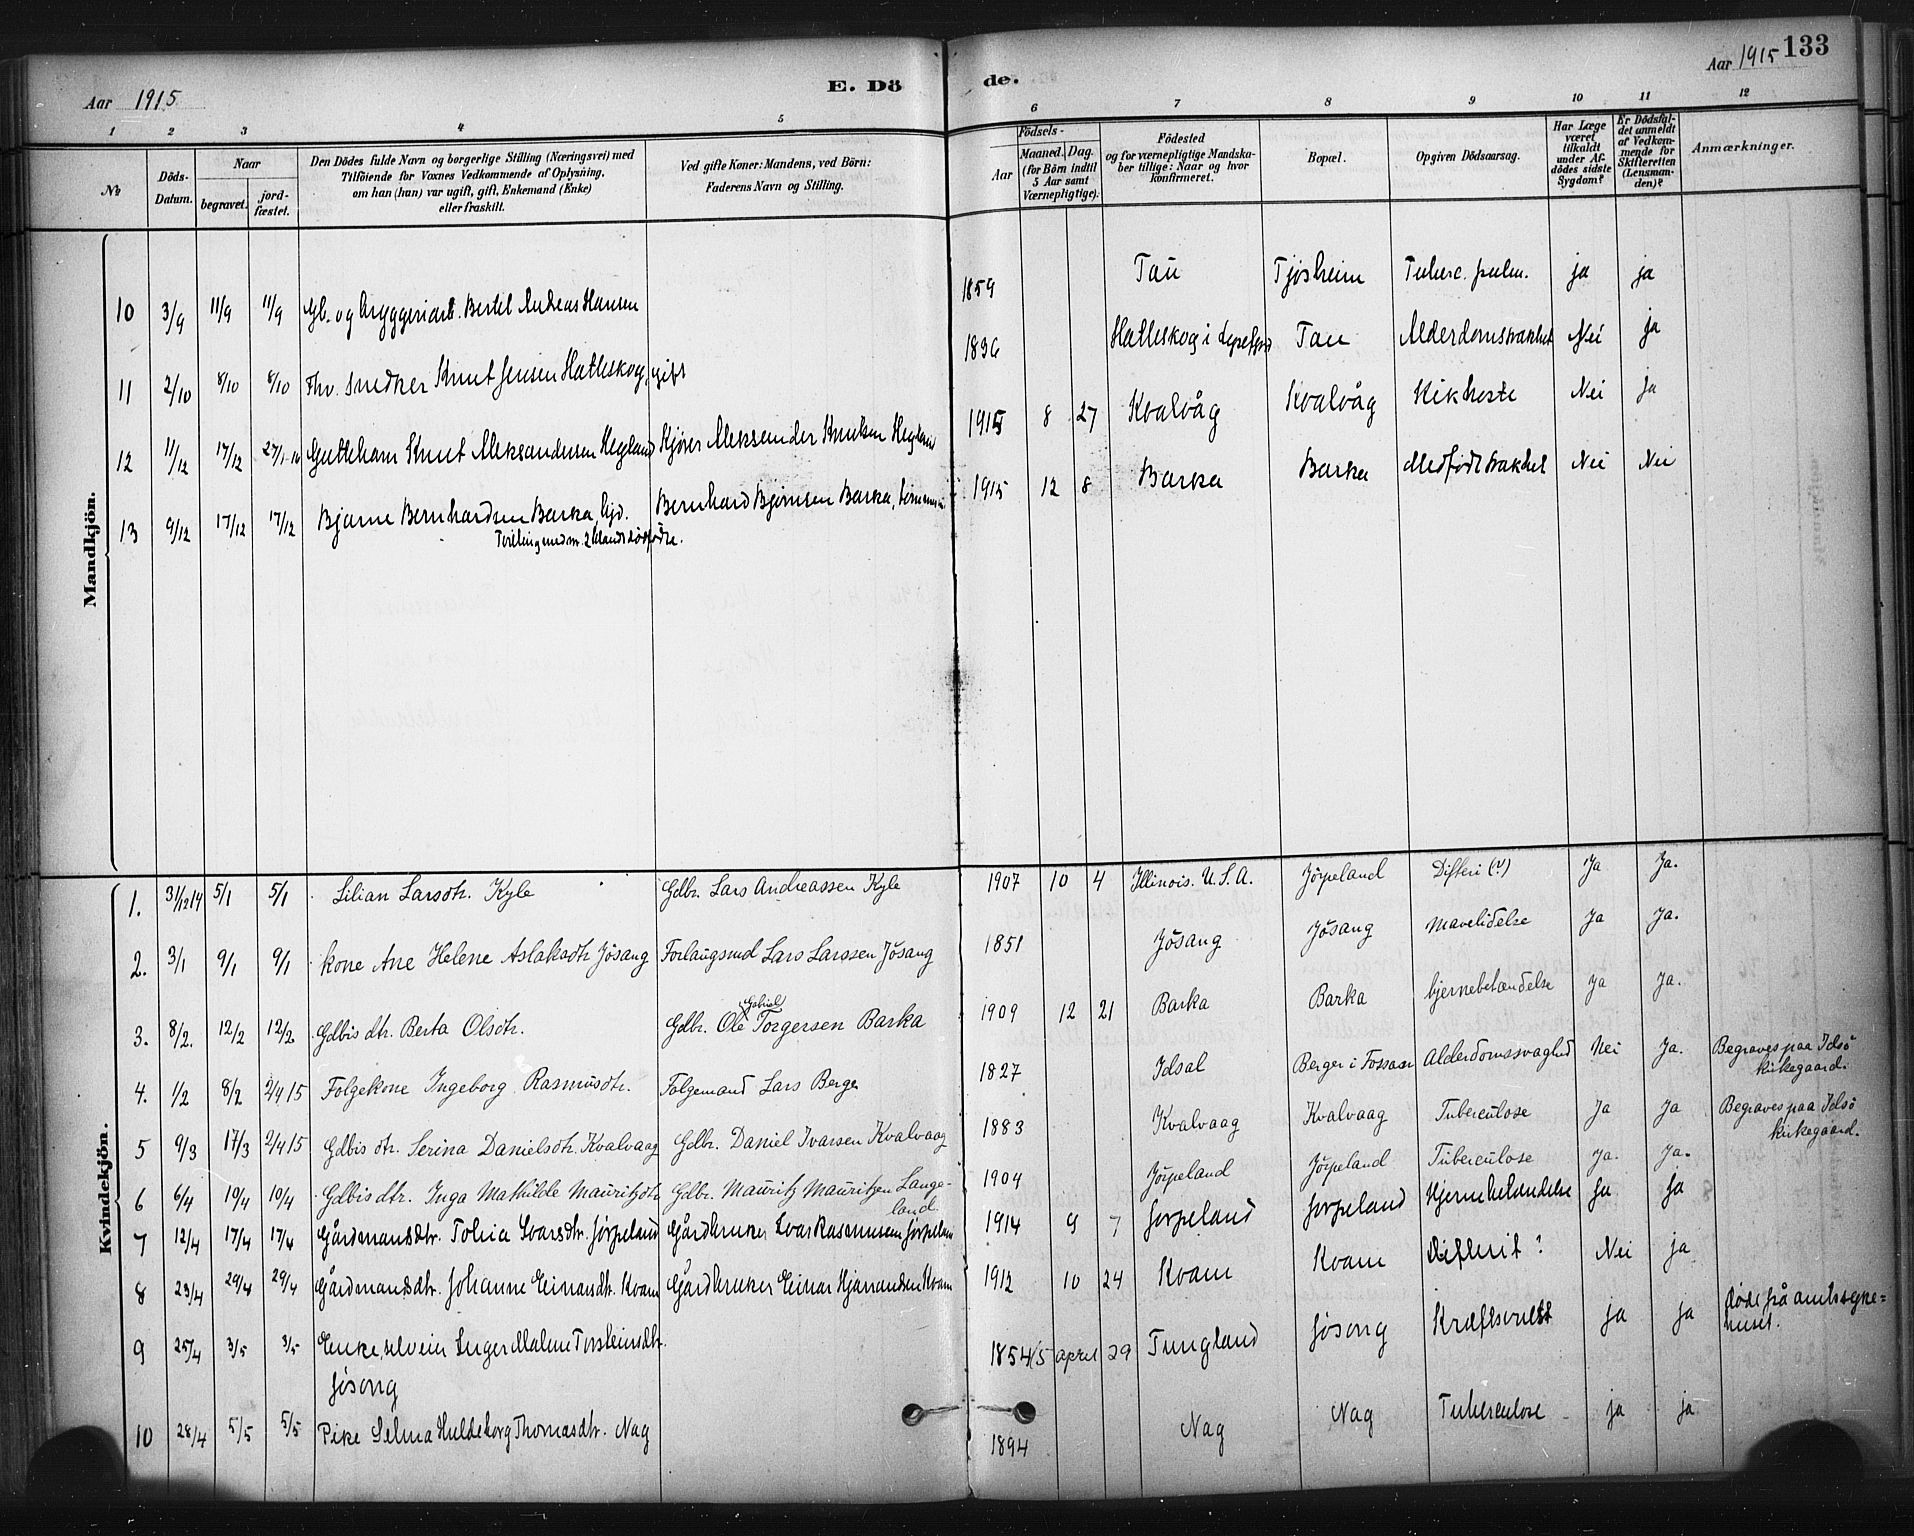 Aar 1915 E. Dö de. Aar 1915 133
1 2 3 4 5 6 7 8 9 10 11 12
No
Döds-Datum.
Naar
begravet.
jord-fæstet.
Den Dödes fulde Navn og borgerlige Stilling (Næringsvei) med
Tilföiende for Voxnes Vedkommende af Oplysning,
om han (hun) var ugift, gift, Enkemand (Enke)
eller fraskilt.
Ved gifte Koner: Mandens, ved Börn:
Faderens Navn og Stilling.
Födsels-
Aar
Maaned. Dag.
(for Börn indtil
5 Aar samt
Værnepligtige).
Födested
og for værnepligtige Mandska-
ber tillige: Naar og hvor
konfirmeret.
Bopæl.
Opgiven Dödsaarsag.
Har Læge
været
tilkaldt
under Af-
dödes sidste
Sygdom?
Er Dödsfal-
det anmeldt
af Vedkom-
mende for
Skifteretten
(Lensman-
den)?
Anmærkninger.
Mandkjön.
10 3/9 11/9 11/9 Gb. og bryggeriarb. Bertel Andreas Hansen 1859 Tau Tjøsheim Tuberc. pulm. ja ja
11 2/10 8/10 8/10 Fhv. snedker Knut Jensen Hatleskog, gift 1836 Hatleskog i Tau Alderdomssvakhet Nei ja
12 11/12 17/12 27/1-16 Guttebarn Knut Aleksandersen Hegland Kjører Aleksander Knutsen Hegland 1915 8 27 Kvalvåg Kvalvåg Kikhoste Nei ja
13 9/12 17/12 17/12 Bjarne Bernhardsen Barka, hjd. Bernhard Bjørnsen Barka, 1915 12 8 Barka Barka Medfødt svakhet Nei Nei
Trilling med nr. 2 blandt dødfødte.
Kvindekjön.
1. 31/12 14 5/1 5/1 Lilian Larsdtr. Kyle Gdbr. Lars Andreassen Kyle 1907 10 4 Illinois. U.S.A. Jörpeland Difteri (?) Ja Ja.
2. 3/1 9/1 9/1 Kone Ane Helene Aslaksdtr Jösang Forlaugsmd Lars Larssen Jösang 1851 Jösang Jösang Mavelidelse Ja Ja.
3. 8/2. 12/2 12/2 Gdbrs dtr. Berta Olsdtr. Gdbr. Ole Gabriel Torgersen Barka 1909 12 21 Barka Barka Hjernebetændelse Ja Ja.
4. 1/2 8/2 2/4 15 Folgekone Ingeborg Rasmusdtr. Folgemand Lars Berge 1827 Idsal Berge i Fossan Alderdomssvaghed Nei Ja. Begraves paa Idsö
kirkegaard.
5 9/3 17/3 2/4 15 Gdbrs dtr. Serina Danielsdtr. Kvalvaag Gdbr. Daniel Ivarsen Kvalvaag 1883 Kvalvaag Kvalvaag Tuberculose Ja Ja Begraves paa Idsö
kirkegaard.
6 6/4 10/4 10/4 Gdbrs dtr. Inga Mathilde Mauritzdtr Gdbr. Mauritz Mauritzen Lange-
land. 1904 Jörpeland Jörpeland Tuberculose Ja. Ja.
7 12/4 17/4 17/4 Gårdmansdtr. Tolina Ivarsdtr. Jørpeland Gårdbruker Ivar Rasmussen Jørpeland 1914 9 7 Jørpeland Jørpeland Hjernebetændelse Ja Ja
8 23/4 29/4 29/4 Gårdmansdtr. Johanne Einarsdtr. Kvam Gårdbruker Einar Hjanandsen Kvam 1912 10 24 Kvam Kvam Difterit? Nei ja
9 25/4 3/5 3/5 Enke, selveier Inger Malene Torsteinsdtr. 1854 4/5 april 29 Tungland Jøsong Kræftsvulst ja ja døde på amtssyke-
huset.
Jøsong
10 28/4 5/5 5/5 Pike Selma Huldeborg Thomasdtr. Nag 1894 Nag Nag Tuberculose ja ja